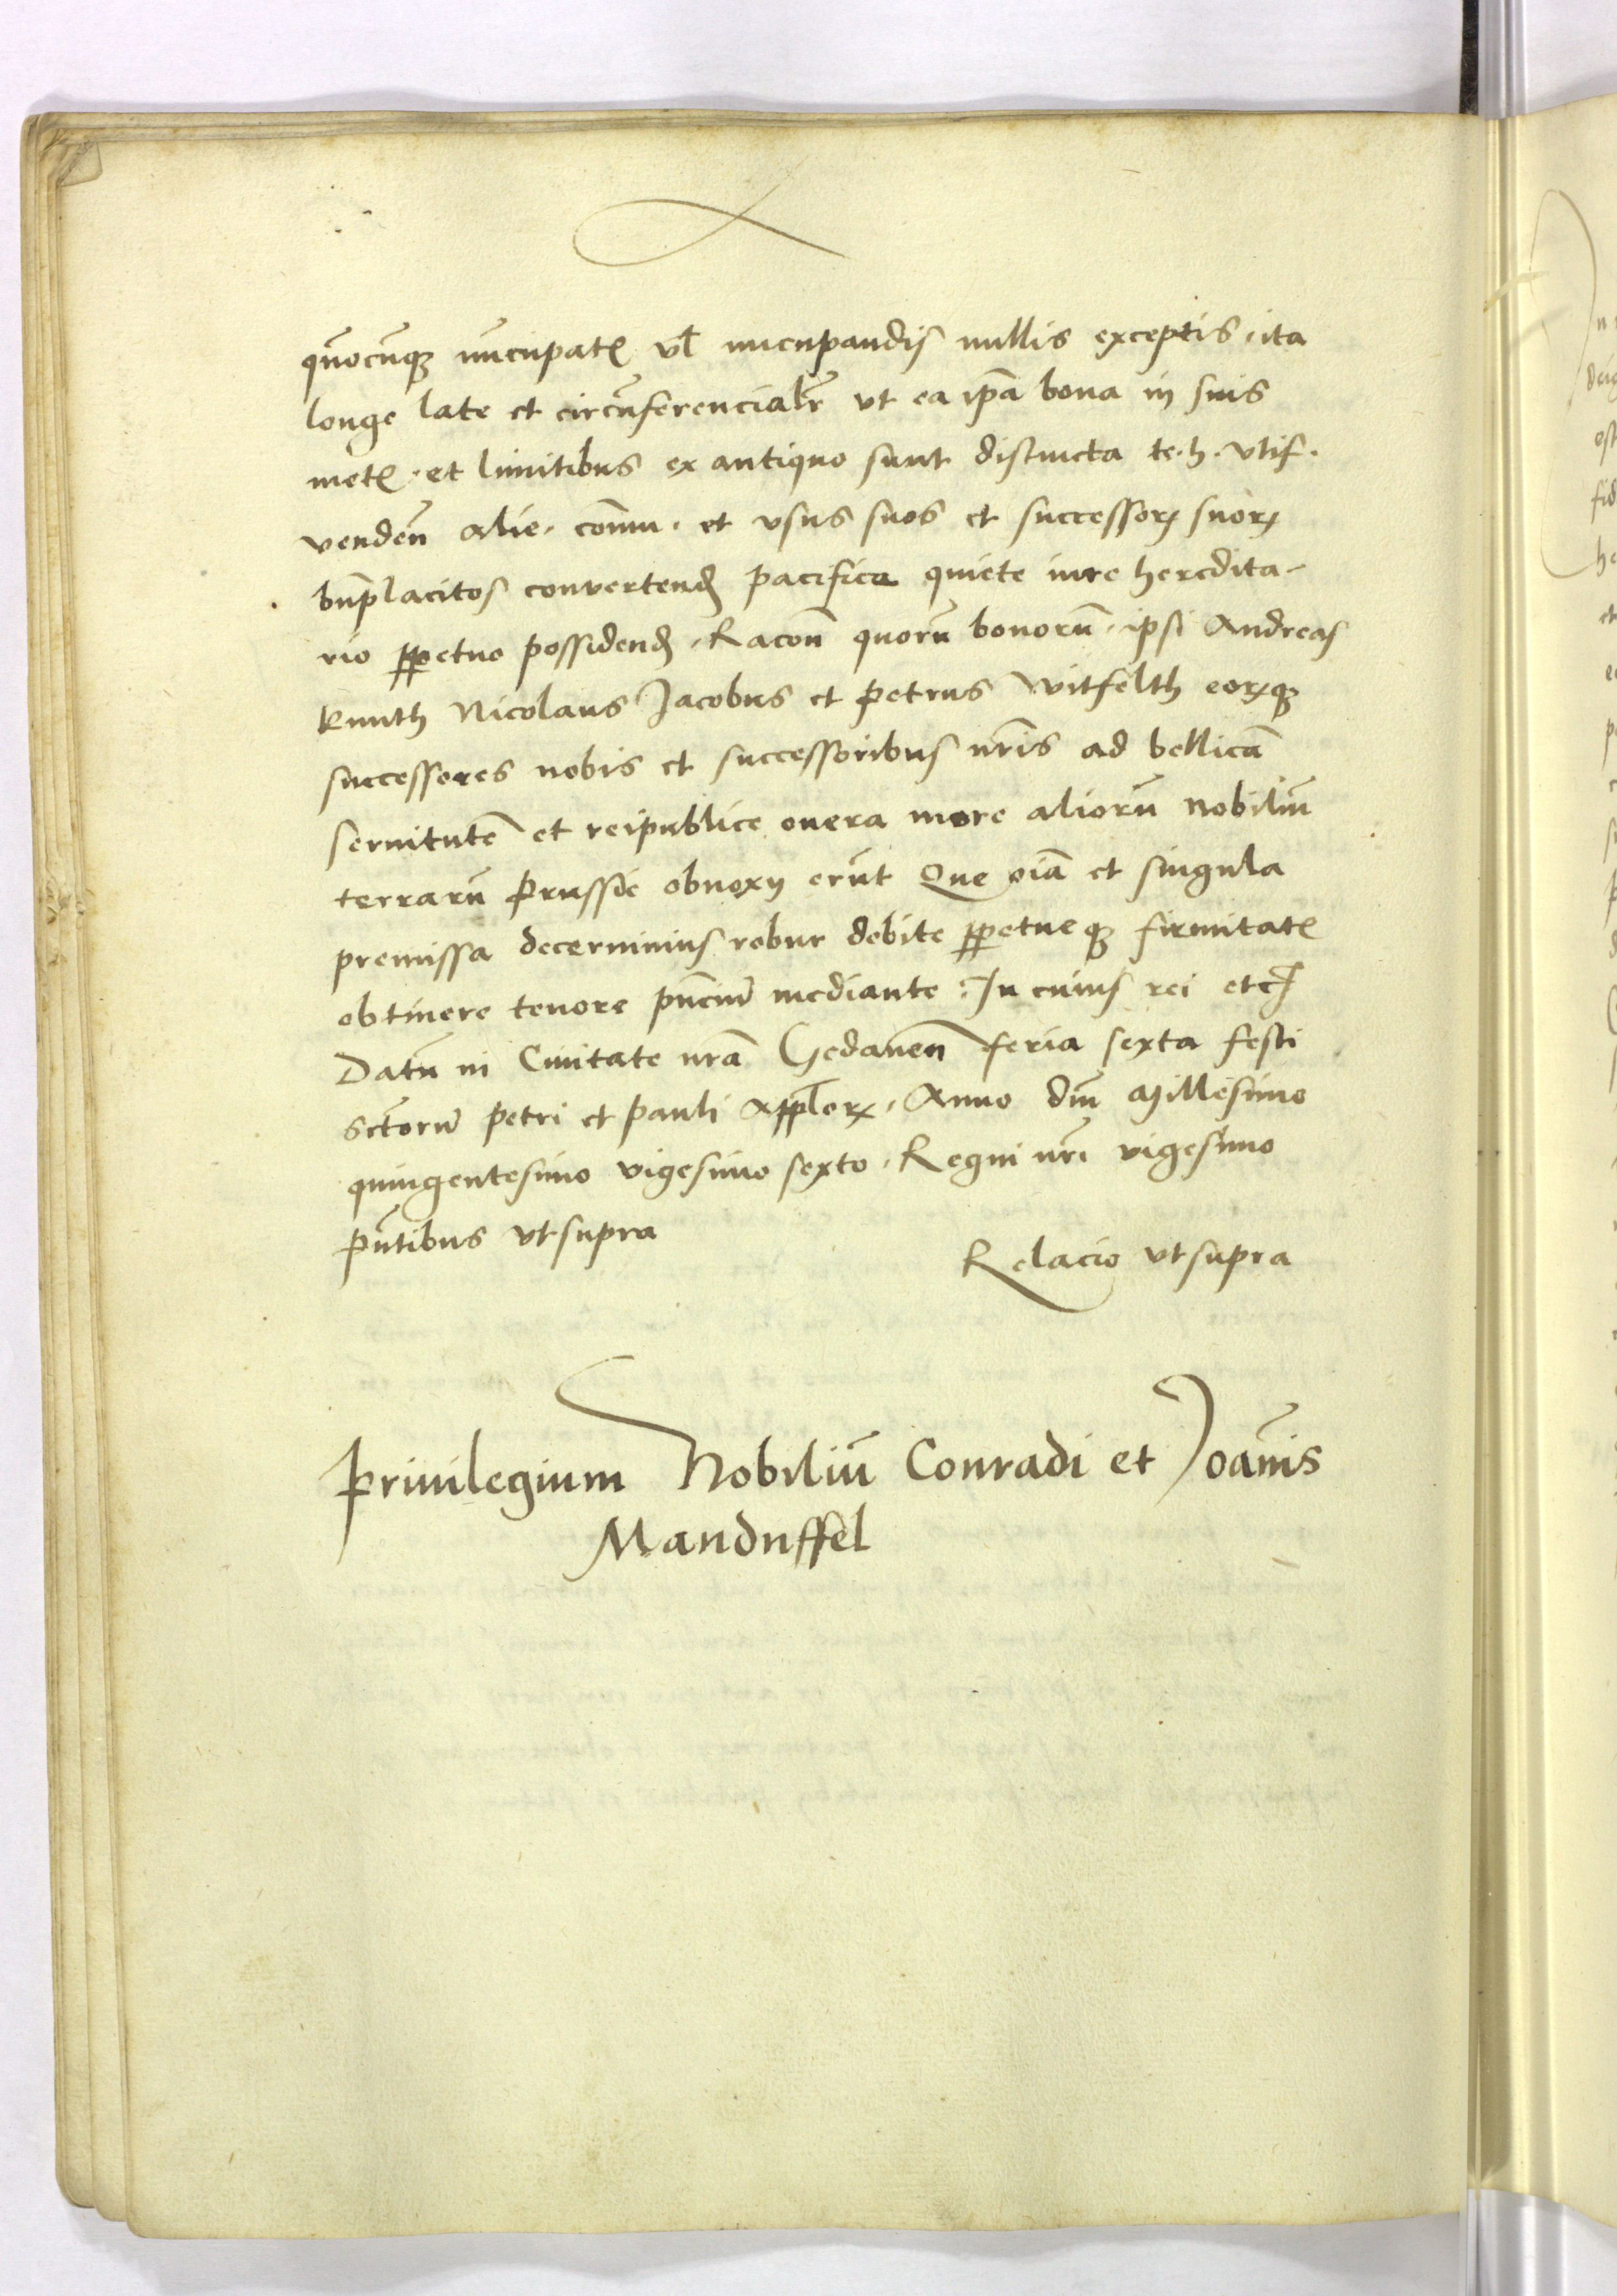 quocũqꝫ nũcupatꝭ vł nucupandis nullis exceptis, ita
longe late et circũferencialr̃ vt ea ip̃a bona in suis
metꝭ et limitibus ex antiquo sunt distincta te. h. vtif.
venden̄ alie. com̃u. et vsus suos et successorꝝ suorꝝ
bn̄placitos convertend̄ pacifica quiete iure heredita-
rio ꝑpetuo possidend̄. Racon̄ quorũ bonorũ, ipsi Andreas
knuth Nicolaus Jacobus et Petrus Witfelth eorꝝqꝫ
successores nobis et successoribus nr̃is ad bellicã
seruitutẽ et reipublice onera more aliorũ nobiliũ
terrarũ Prussie obnoxij erũt Que oĩa et singula
premissa decernimus robur debite ꝑpetueqꝫ firmitatꝭ
obtinere tenore pñciũ mediante: In cuius rei etc̃
Datũ in Ciuitate nr̃a Gedanen̄ feria sexta festi
sctorũ Petri et Pauli Appl̃orꝝ, Anno dñi Millesimo
quingentesimo vigesimo sexto, Regni nr̃i vigesimo
pñtibus vt supra
Relacio vt supra
Priuilegium Nobiliũ Conradi et Joãnis
Manduffel